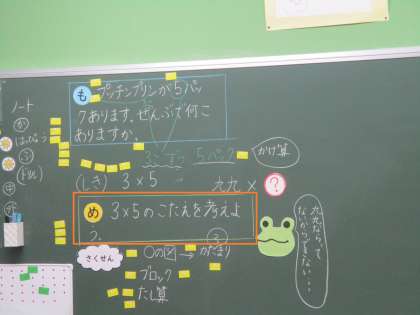 も プッチンプリンが5パッ
クあります。ぜんぶで何こ
ありますか。
ノート
はっぴょう
3こずつ 5パック
かけ算
(しき) 3×5
九九 × ?
め 3×5のこたえを考えよ
う。
さくせん
〇の図 → かたまり
ブロック
たし算
九九ならって
ないからできない・・・